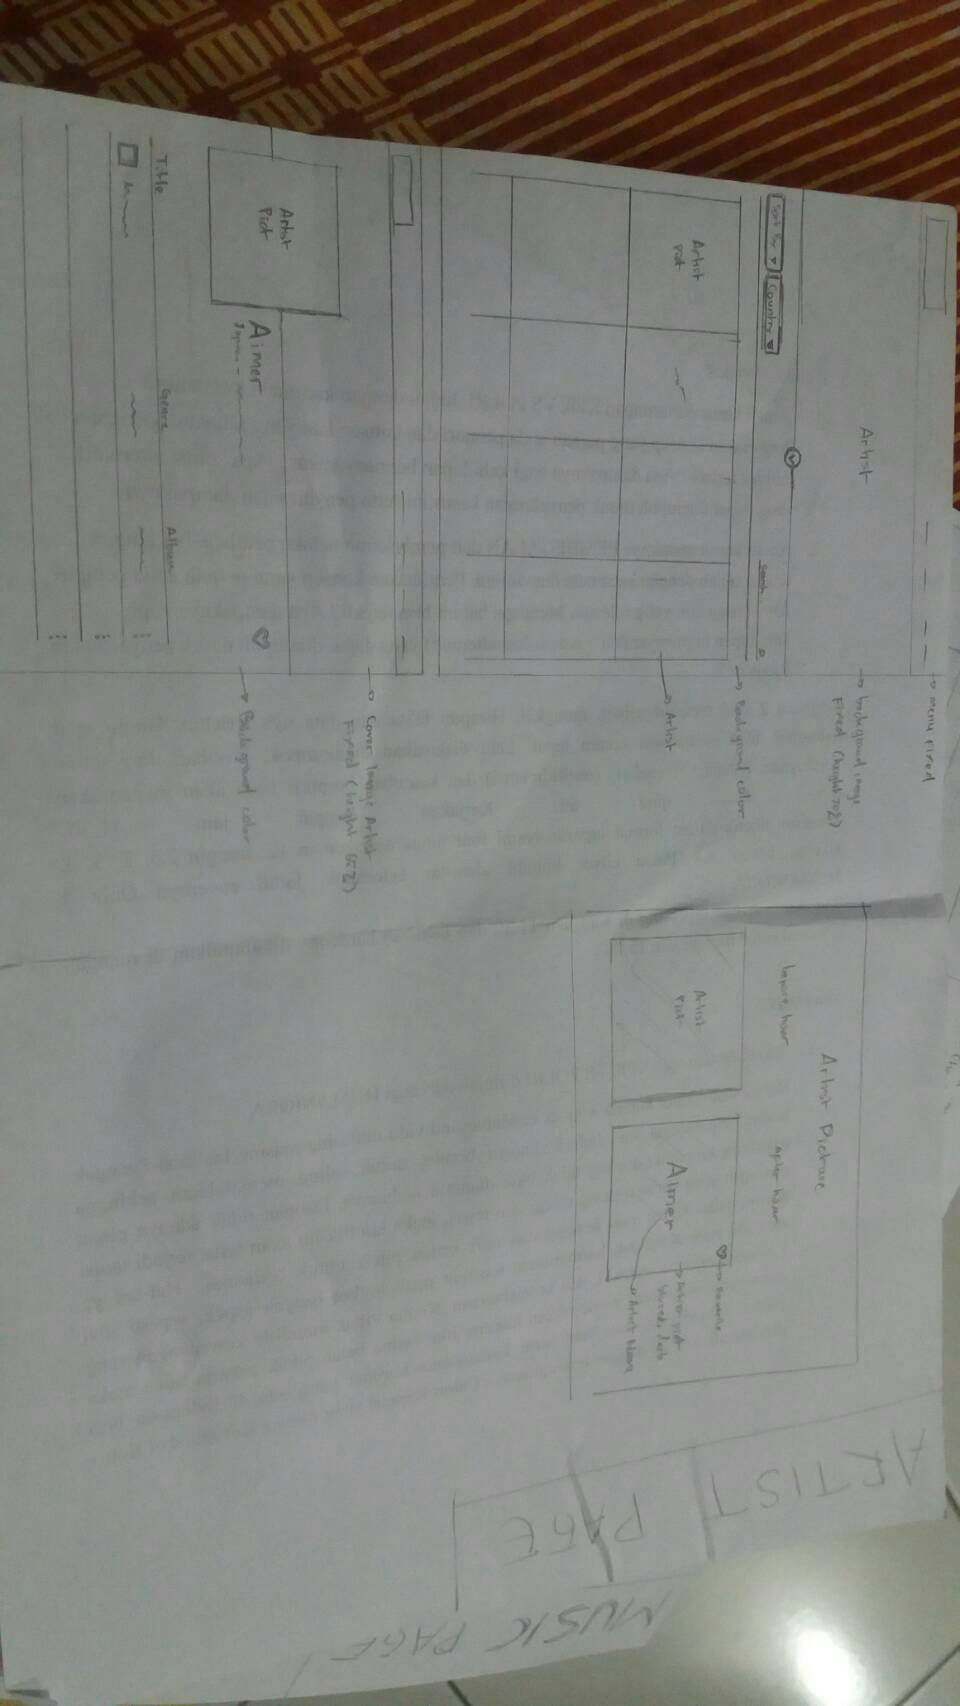 menu Fixed
Artist
background image
Fixed (height 70%)
Sort By
Country
Search
Background color
Artist
Pict
Artist
Cover Image Artist
Fixed (height 65%)
Artist
Pict
Aimer
Japan -
Background color
Title
Genre
Album
Artist Picture
before hover
after hover
Artist
Pict
Aimer
Favorite
Artist pict
blured, dark
Artist Name
ARTIST PAGE
MUSIC PAGE